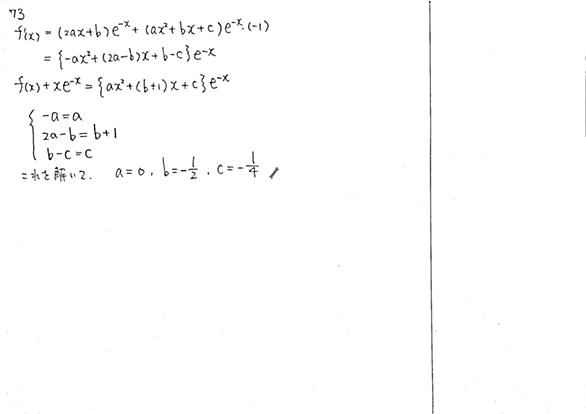 73
f'(x) = (2ax+b)e⁻ˣ + (ax²+bx+c)e⁻ˣ·(-1)
= {-ax²+(2a-b)x+b-c}e⁻ˣ
f(x)+xe⁻ˣ = {ax²+(b+1)x+c}e⁻ˣ
-a=a
2a-b=b+1
b-c=c
これを解いて. a=0, b=-1/2, c=-1/4